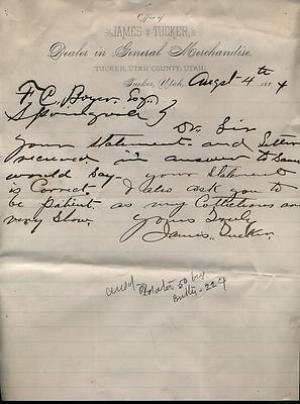 Office of
JAMES TUCKER,
Dealer in General Merchandise.
TUCKER, UTAH COUNTY, UTAH.
Tucker, Utah, Augst 4th 4
F. C. Boyer Esq.
Springville
Dr Sir
Your statement and letter
recieved in answer to same
would say your statement
is Correct. I also ask you to
be patient as my Collections are
very Slow.
Yours Truly
James Tucker
Potatoes 50
22 4